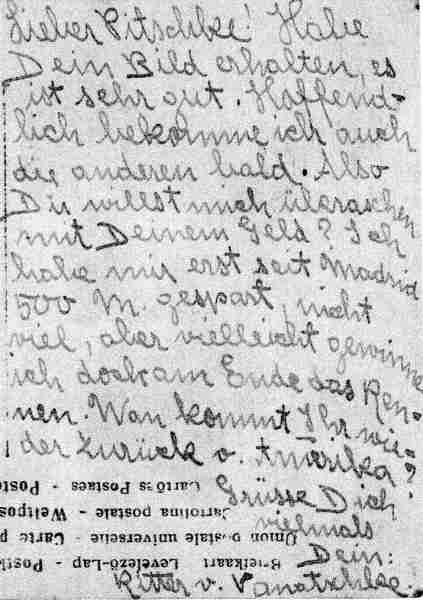 Lieber Pitschke! Habe
Dein Bild erhalten, es
ist sehr gut. Hoffend-
lich bekomme ich auch
die anderen bald. Also
Du willst mich überaschen
mit Deinem Geld? Ich
habe mir erst seit Madrid
500 M. gespart, nicht
viel, aber vielleicht gewinne
ich doch am Ende das Ren-
nen. Wan kommt Ihr wie-
der zurück v. Amerika?
Grüsse Dich
vielmals
Dein:
Ritter v.
Briefkaart - Levelező-Lap - Postk
Union postale universelle - Carte p
Cartolina postale - Weltpos
Cartõs Postaes - Posto